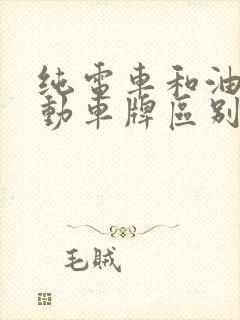 纯電車和油
動車牌區别
毛贼